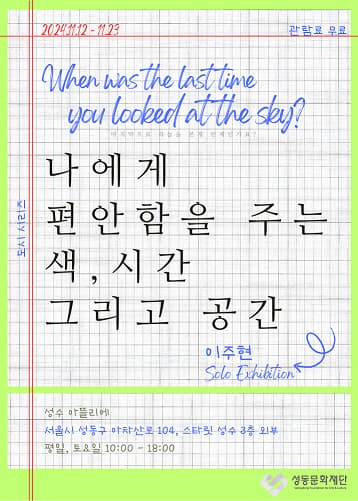 2024.11.12 - 11.23
관람료 무료
When was the last time
you looked at the sky?
마지막으로 하늘을 본게 언제인가요?
나에게
편안함을 주는
색, 시간
그리고 공간
도시 시리즈
이주현
Solo Exhibition
성수 아뜰리에
서울시 성동구 아차산로 104, 스타릿 성수 3층 외부
평일, 토요일 10:00 - 18:00
성동문화재단